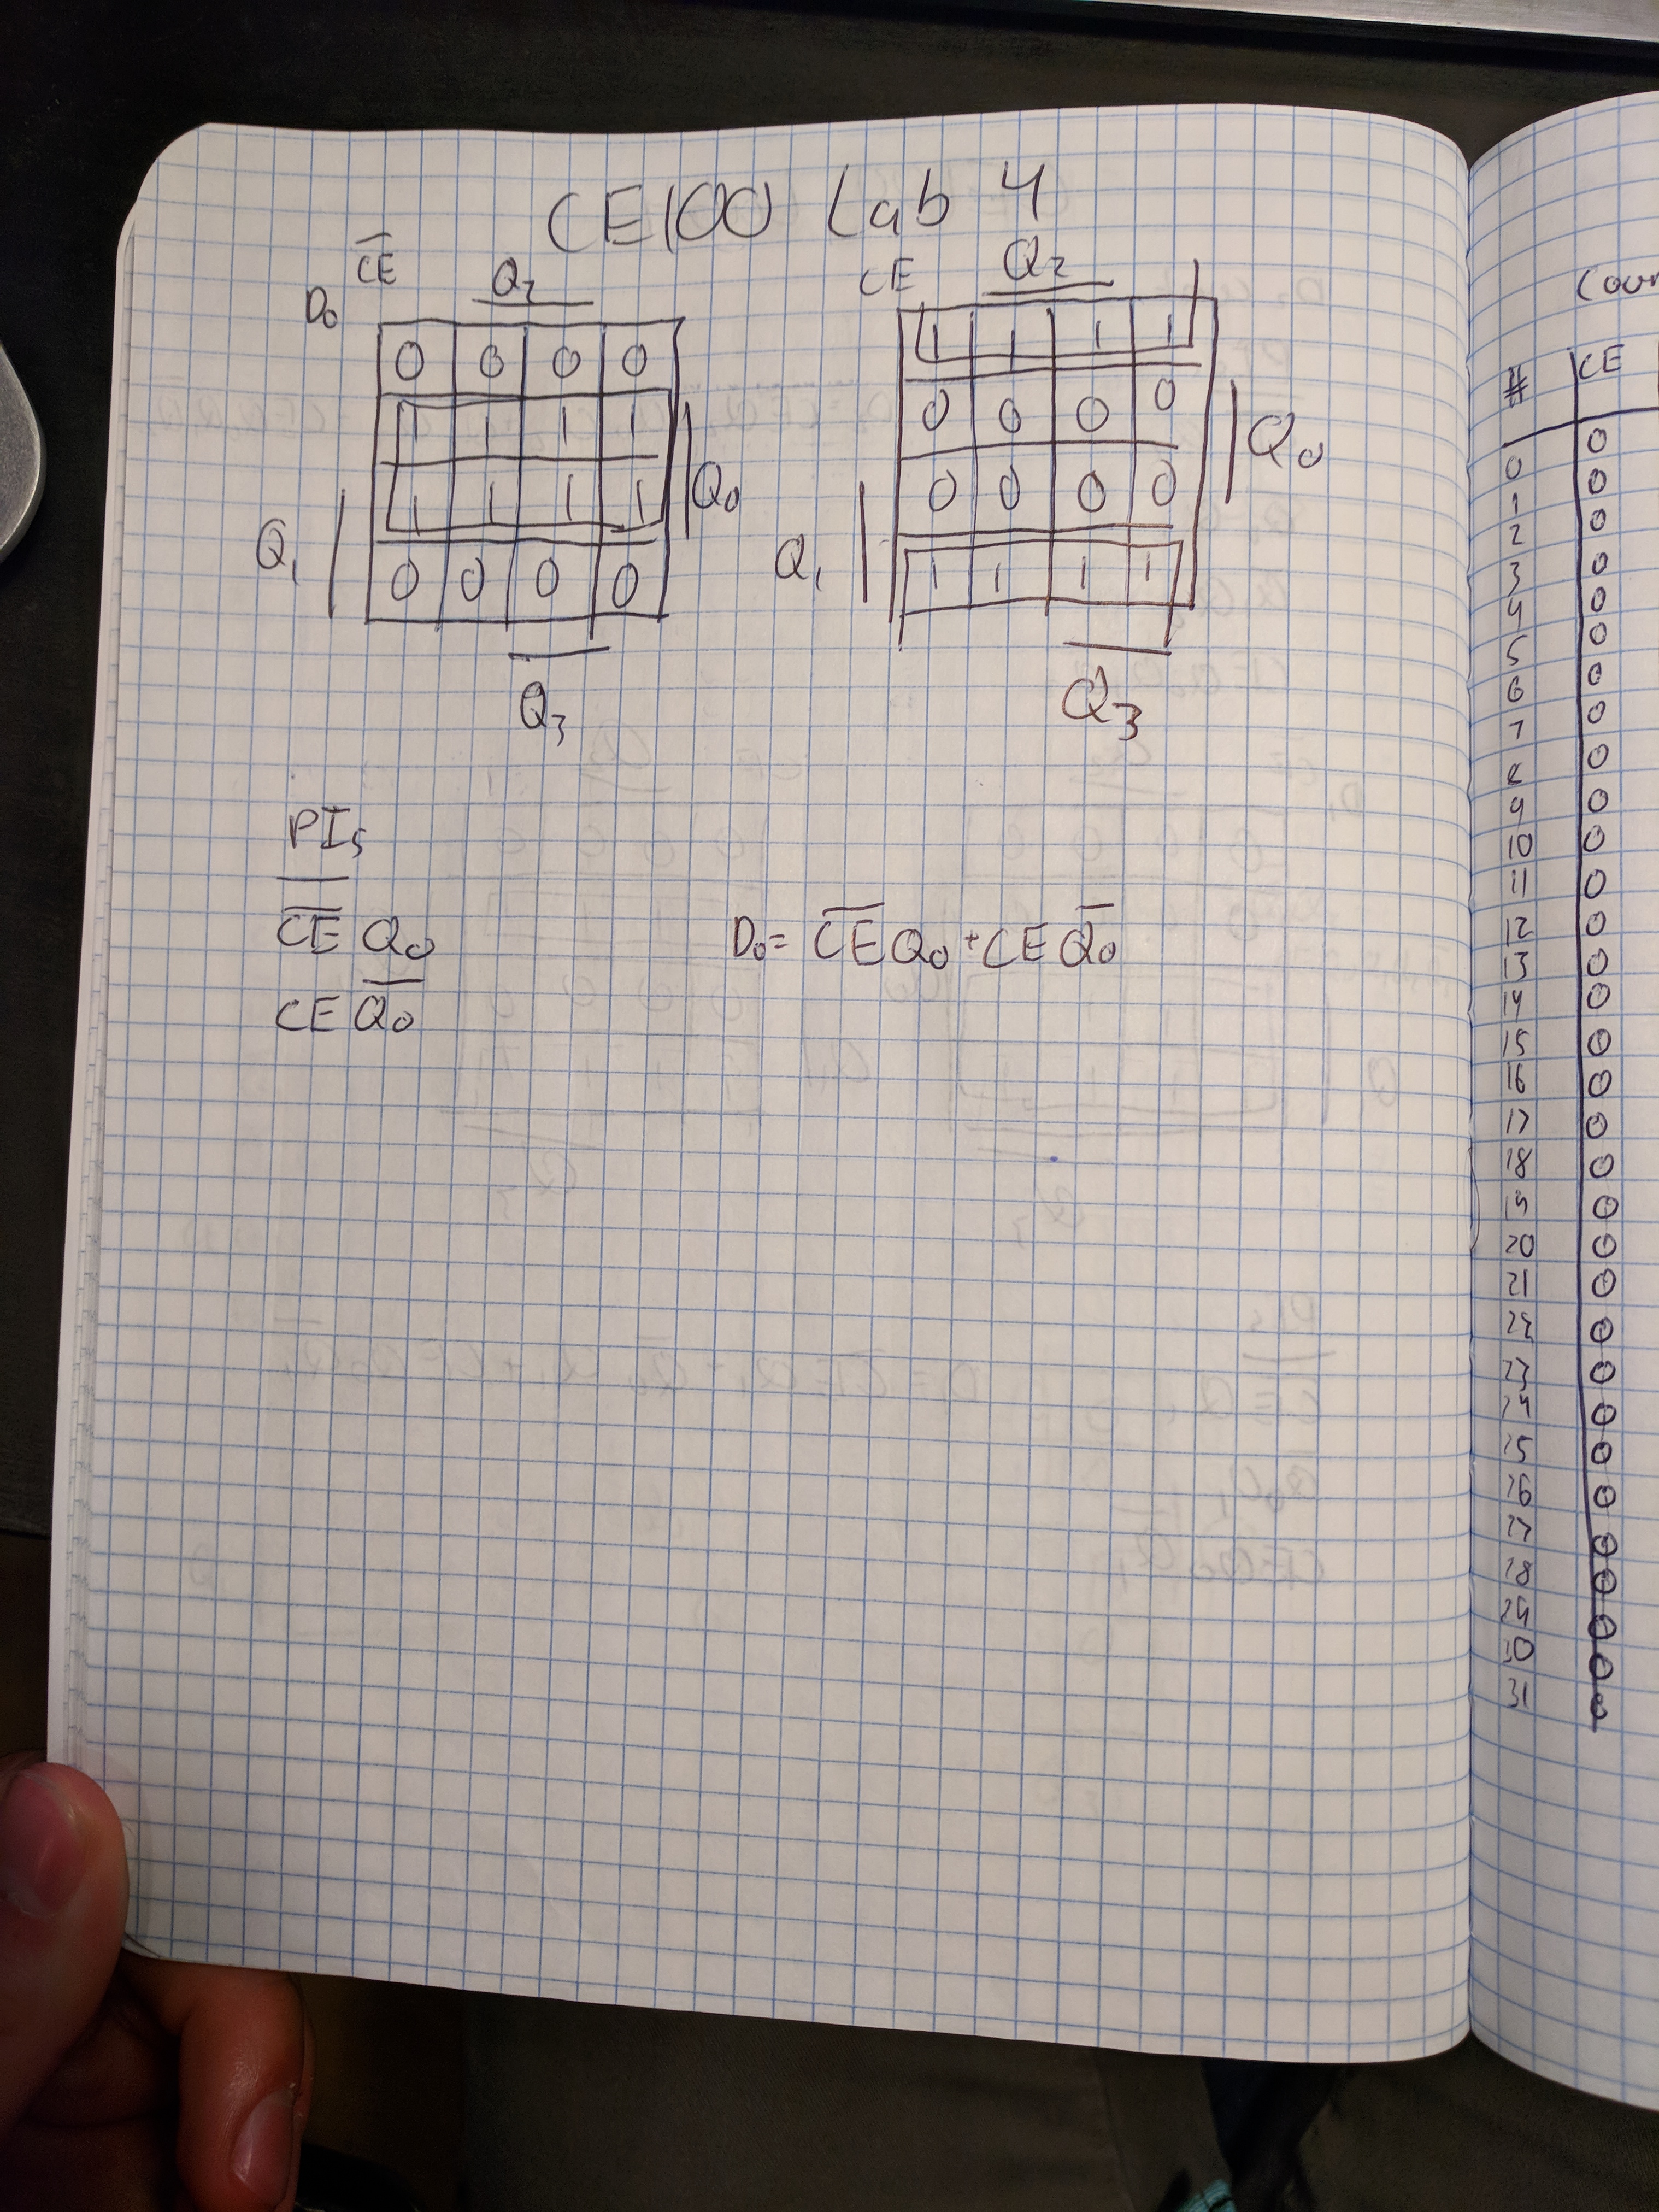 CE100 Lab 4
D₀ C̅E̅ Q₂
0 0 0 0
1 1 1 1
1 1 1 1 Q₀
Q₁
0 0 0 0
Q₃
CE Q₂
1 1 1 1
0 0 0 0
Q₀
0 0 0 0
Q₁
1 1 1 1
Q₃
PIs
C̅E̅ Q₀
CE Q̅₀
D₀ = C̅E̅ Q₀ + CE Q̅₀
# CE
0 0
1 0
2 0
3 0
4 0
5 0
6 0
7 0
8 0
9 0
10 0
11 0
12 0
13 0
14 0
15 0
16 0
17 0
18 0
19 0
20 0
21 0
22 0
23 0
24 0
25 0
26 0
27 0
28 0
29 0
30 0
31 0